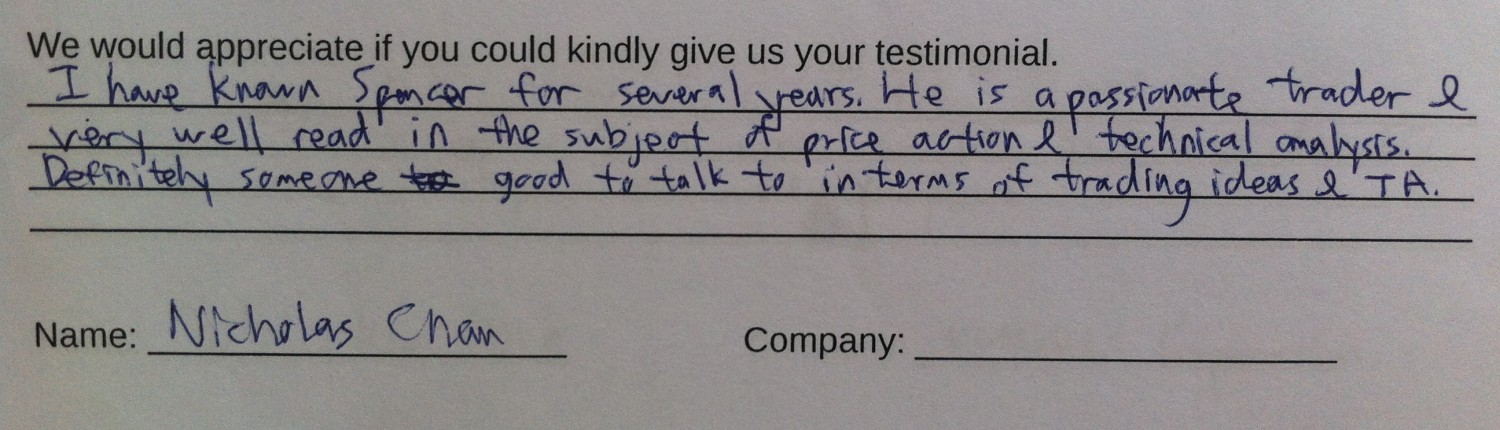 We would appreciate if you could kindly give us your testimonial.
I have known Spencer for several years. He is a passionate trader &
very well read in the subject of price action & technical analysis.
Definitely someone good to talk to in terms of trading ideas & TA.
Name: Nicholas Chan Company: